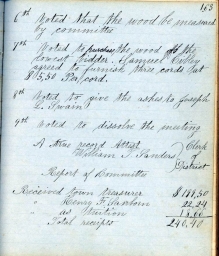 163
6th Voted that the wood be measured
by committee
7th Voted to purchase the wood of the
lowest bidder. Samuel
agreed to furnish three cords at
$5,50 Per cord.
8th Voted to give the ashes to Joseph
Swain
9th voted to dissolve the meeting
A true record Attest
William T. Sanders } Clerk
of
District
Report of Committee
Received town treasurer $188,50
" Henry F. 22.24
" as tuition
Total receipts 240,40